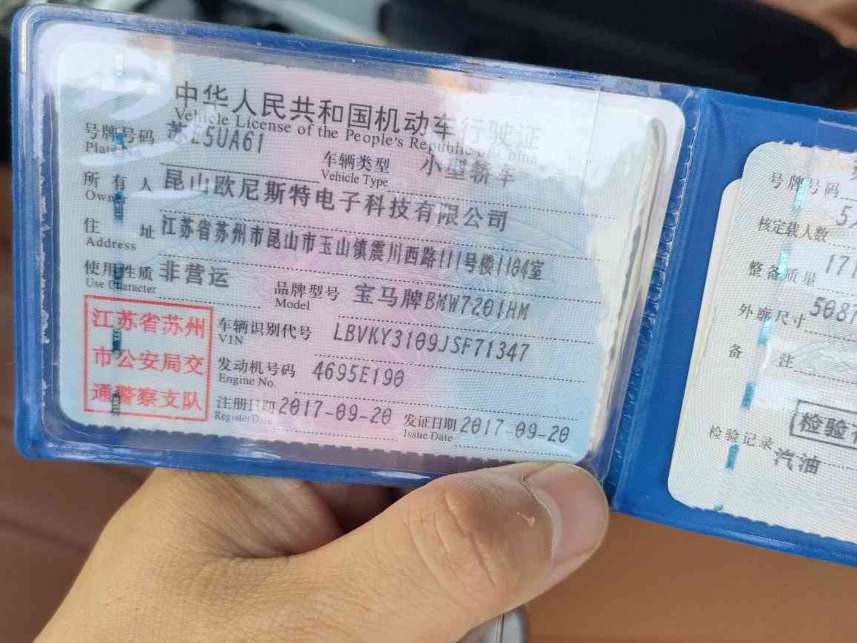 中华人民共和国机动车行驶证
Vehicle License of the People's Republic of China
号牌号码 苏E5UA61 车辆类型 小型轿车
Plate No. Vehicle Type
所有人 昆山欧尼斯特电子科技有限公司
Owner
住址 江苏省苏州市昆山市玉山镇震川西路111号楼1104室
Address
使用性质 非营运 品牌型号 宝马牌BMW7201HM
Use Character Model
江苏省苏州
市公安局交
通警察支队
车辆识别代号 LBVKY3109JSF71347
VIN
发动机号码 4695E190
Engine No.
注册日期 2017-09-20 发证日期 2017-09-20
Register Date Issue Date
号牌号码
核定载人数 5
整备质量 171
外廓尺寸 5087
备注
检验
检验记录 汽油